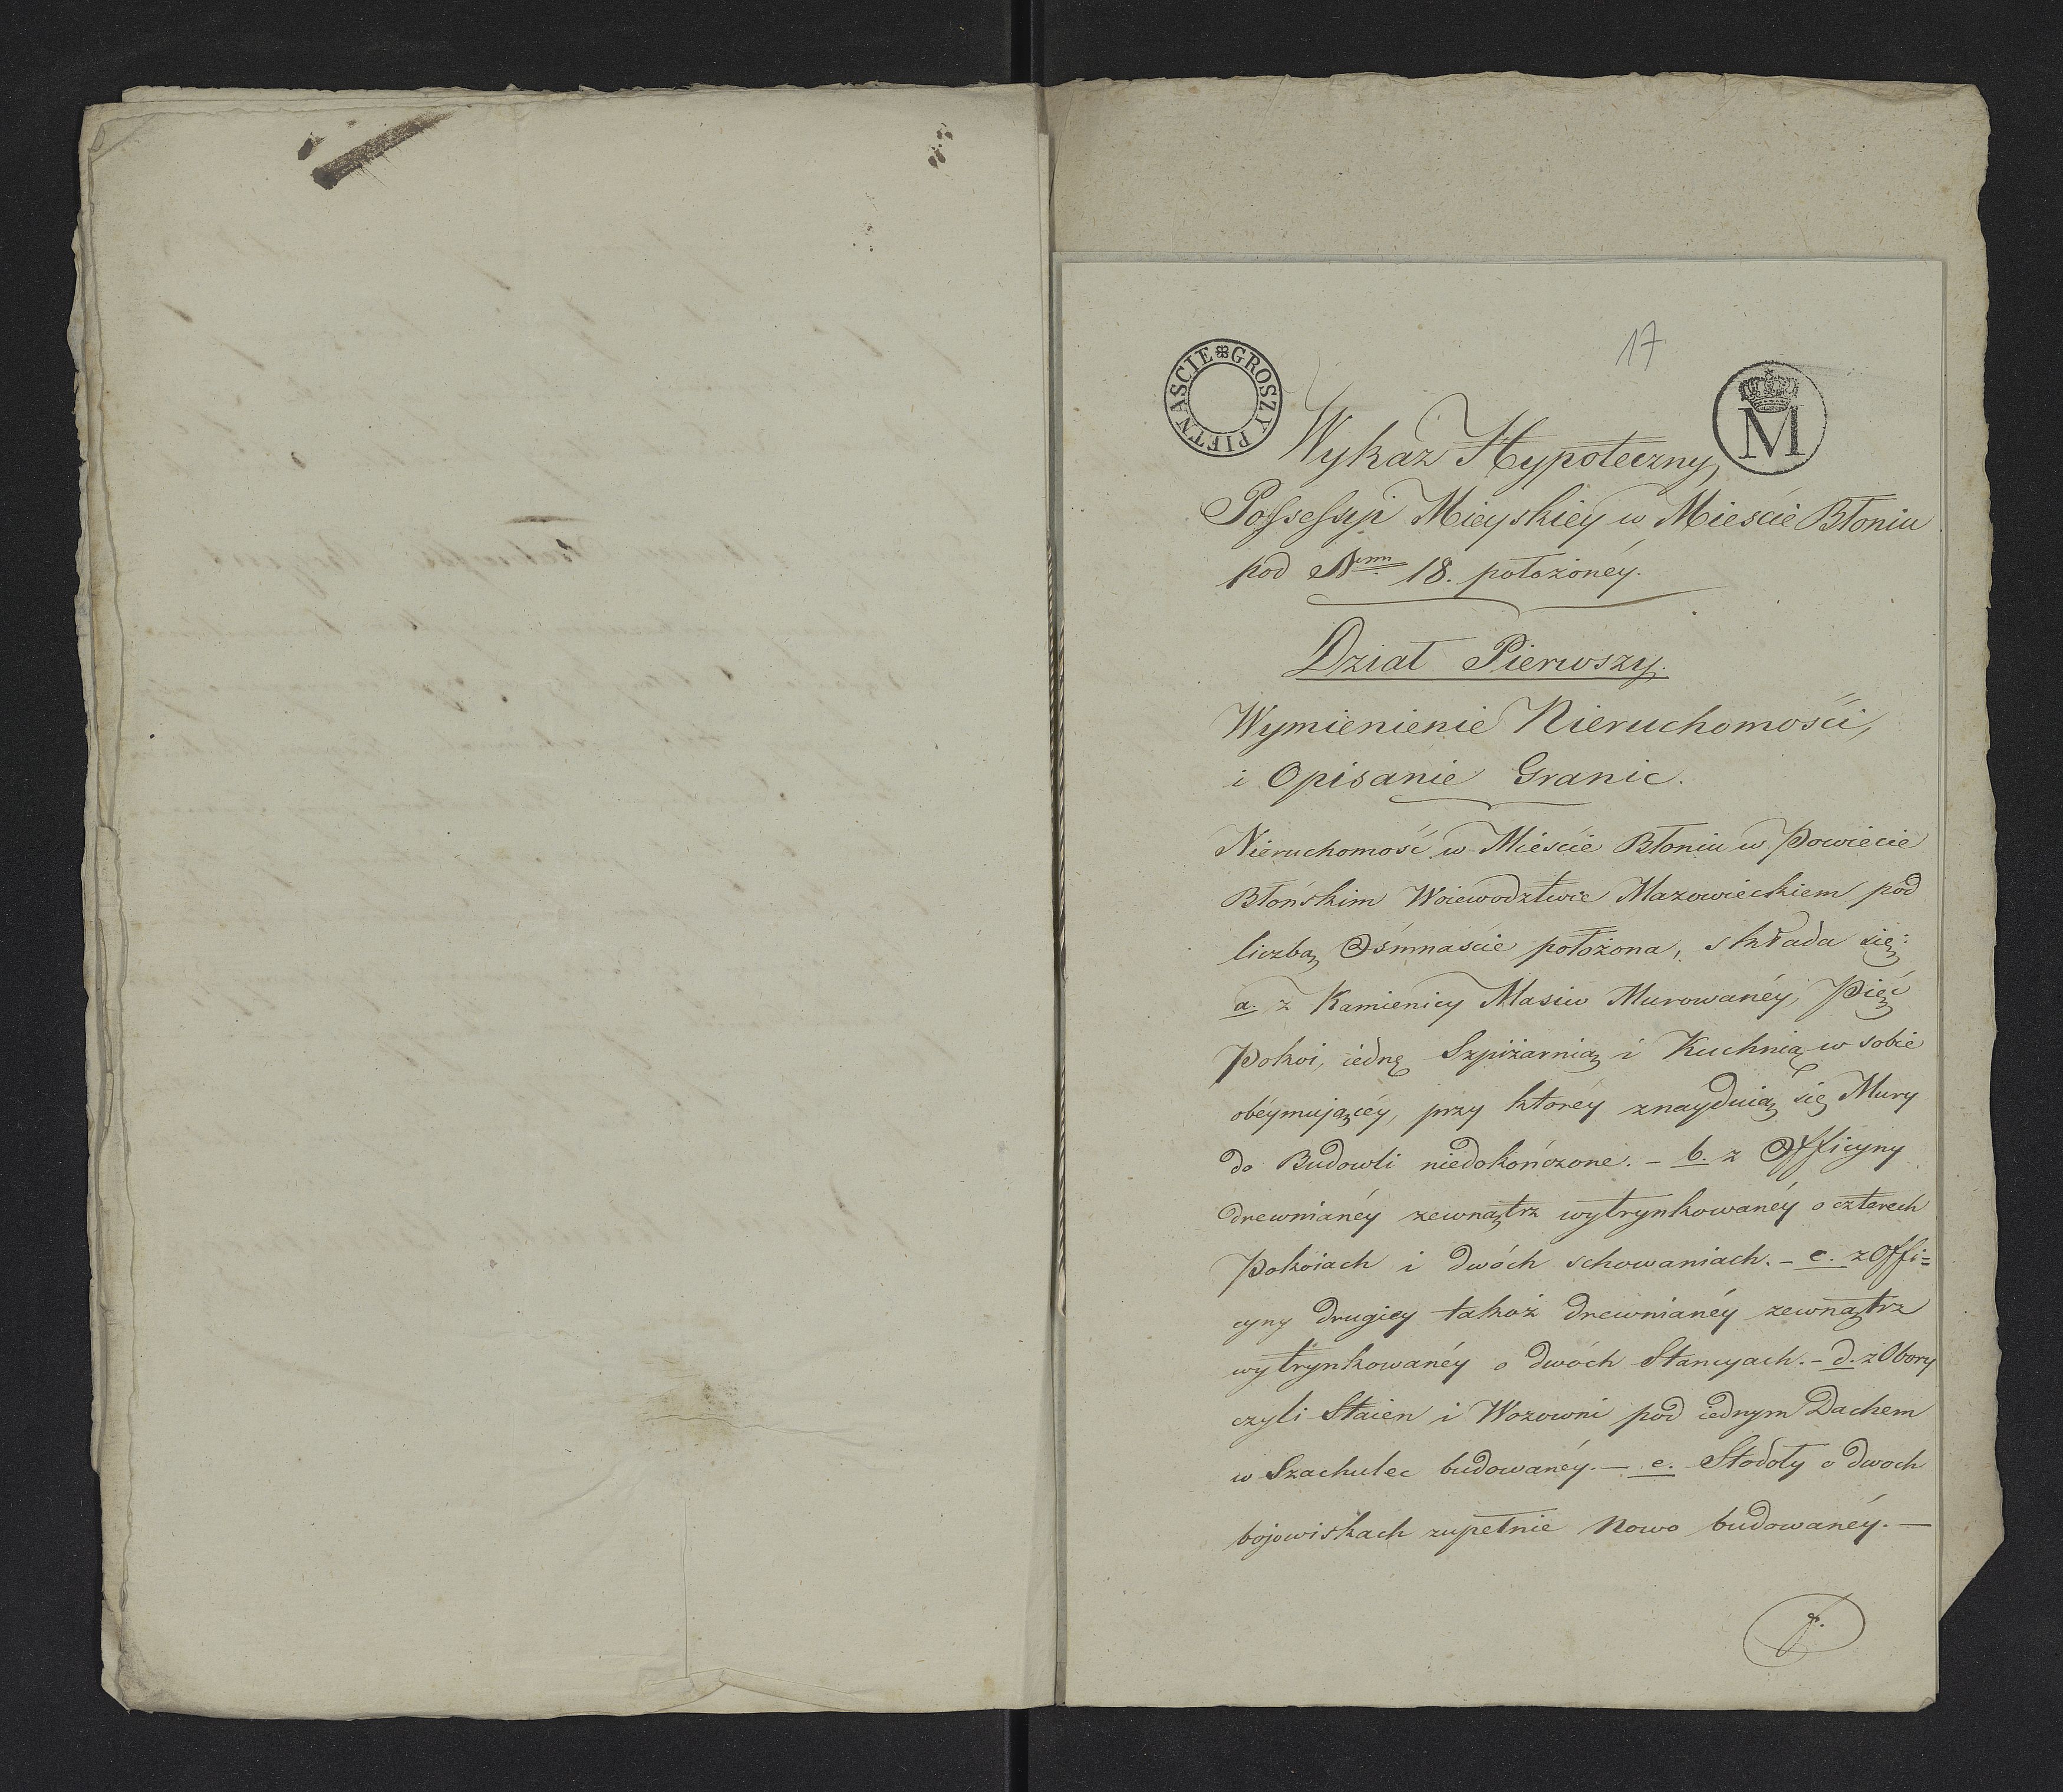 17
GROSZY PIETNASCIE
M
Wykaz Hypoteczny
Possessyi Mieyskiey w Mieście Błoniu
pod Nrm 18. położonéy.
Dział Pierwszy.
Wymienienie Nieruchomości,
i Opisanie Granic.
Nieruchomość w Mieście Błoniu w Powiecie
Błońskim Woiewodztwie Mazowieckiem pod
liczbą Ośmnaście położona, składa się:
a. z Kamienicy Masiw Murowanéy, Pięć
Pokoi, iednę Szpiżarnią i Kuchnią w sobie
obéymuiącéy, przy któréy znayduią się Mury
do Budowli niedokończone. - b. z Officyny
drewnianéy zewnątrz wytrynkowanéy o czterech
Pokoiach i dwóch schowaniach. - c. z Offi=
cyny drugiey takoż drewnianéy zewnątrz
wytrynkowanéy o dwóch Stancyach. - d. z Obory
czyli Staien i Wozowni pod iednym Dachem
w Szachulec budowanéy. - e. Stodoły o dwoch
bojowiskach zupełnie Nowo budowanéy. -